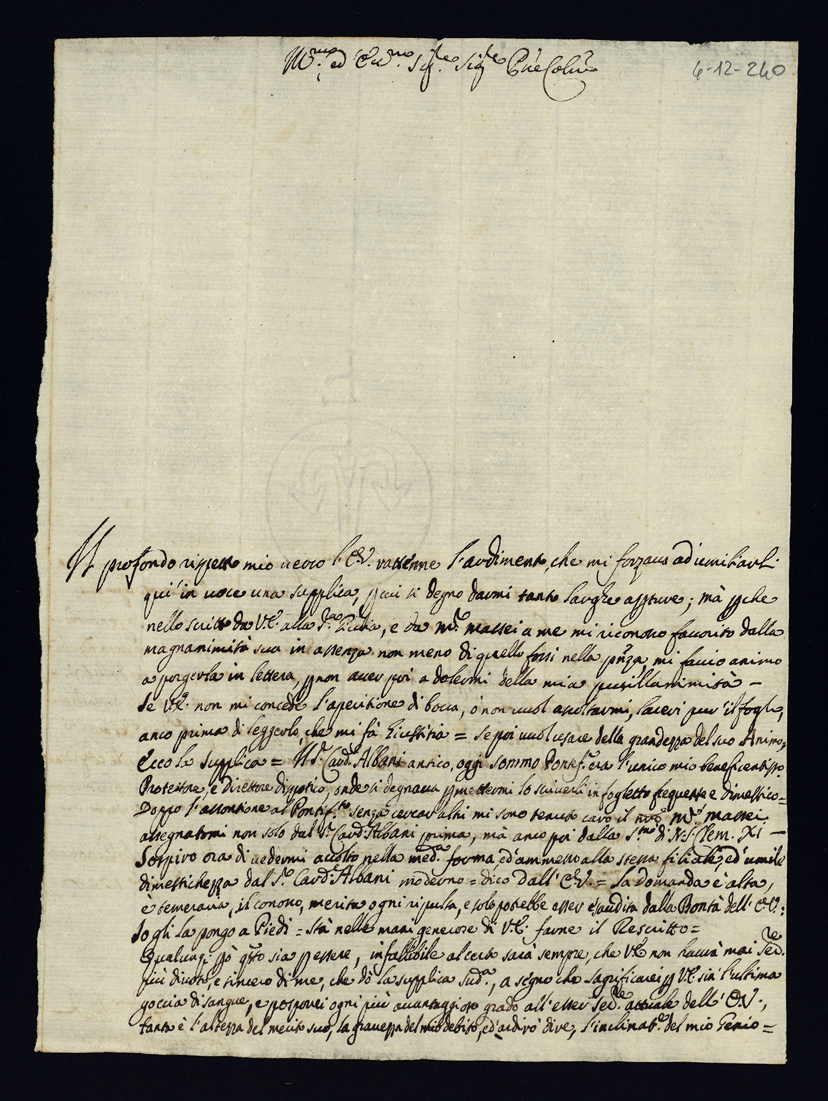 6-12-240
Il profondo rispetto mio verso l'E.V. rattenne l'ardimento, che mi forzava ad umiliarli
qui in voce una supplica, si degnò darmi tante larghe ; mà
nello scritto da V.E. alla , e da Mr. Massei a me mi riconosco favorito dalla
magnanimità sua in assenza non meno di quello fossi nella pnza, mi faccio animo
a porgerla in lettera, non aver poi a dolermi della mia pusillanimità =
Se V.E. non mi concede l'aperitione di bocca, ò non vuol ascoltarmi, laceri pur il foglio,
anco prima di leggerlo, che mi fà Giustitia = Se poi vuol usare della grandezza del suo Animo,
Ecco la supplica = Il Sr. Card. Albani antico, oggi Sommo Pontef. era l'unico mio beneficentissº
Protettore, e Direttore dispotico, onde si degnava permettermi lo scriverli in foglietto frequente e dimestico =
Doppo l'assontione al Pontif.to senza cercar altri mi sono tenuto caro il Mr. Massei,
assegnatomi non solo dal Sr. Card. Albani prima, mà anco poi dalla S.tà di N.S. Clem. XI =
Sospiro ora di vedermi accolto nella med.a forma, ed ammesso alla stessa filiale, ed umile
dimestichezza dal Sr. Card. Albani moderno = dico dall'E.V. = La Domanda è alta,
è temeraria, il conosco, merita ogni ripulsa, e solo potrebbe esser esaudita dalla Bontà dell'E.V.:
Io gli la pongo a Piedi = Stà nelle mani generose di V.E. farne il Rescritto =
Qualunq; pò qsto sia essere, infallibile al certo sarà sempre, che V.E. non haverà mai Ser.re
più divoto, e sincero di me, che dò la supplica sud.a, a segno che sagrificarei V.E. sin l'ultima
goccia di sangue, e posporrei ogni più avantaggioso grado all'esser Ser.re attuale dell'E.V.,
tanta è l'altezza del merito suo, la gravezza del mio debito, ed ardirò dire, l'inclinat.e del mio Genio =